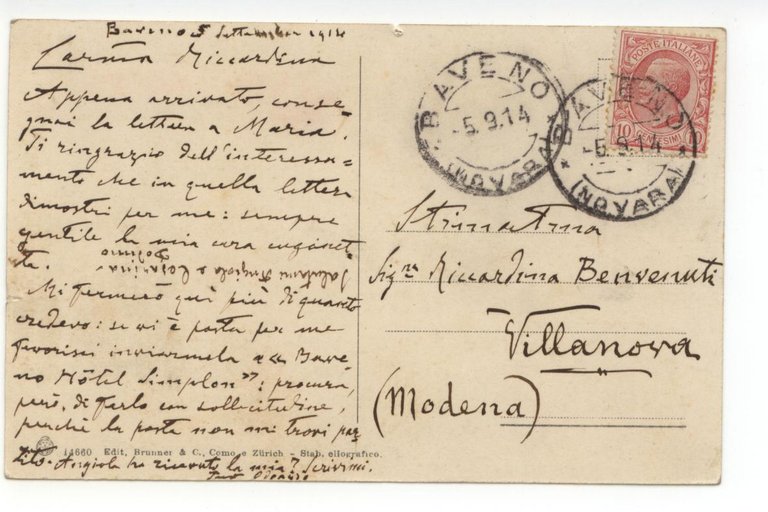 Baveno 5 Settembre 1914
Carma Riccardina
Appena arrivato, conse=
gnai la lettera a Maria.
Ti ringrazio dell'interessa=
mento che in quella lettera
dimostri per me: sempre
gentile la mia cara cuginet
ta.
Salutami Angiola e Cesarina
Mi fermerò qui più di quanto
credevo: se vi è posta per me
favorisci inviarmela a «Bave
no Hôtel Simplon»: procura,
però, di farlo con sollecitudine,
perchè la posta non mi trovi par
tito. Angiola ha ricevuto la mia? Scrivimi.
Tuo
14660 Edit. Brunner & C., Como e Zürich - Stab. eliografico.
POSTE ITALIANE
10 CENTESIMI
BAVENO
-5.9.14
(NOVARA)
BAVENO
-5.9.14
(NOVARA)
Sig.na Riccardina Benvenuti
Villanova
(Modena)